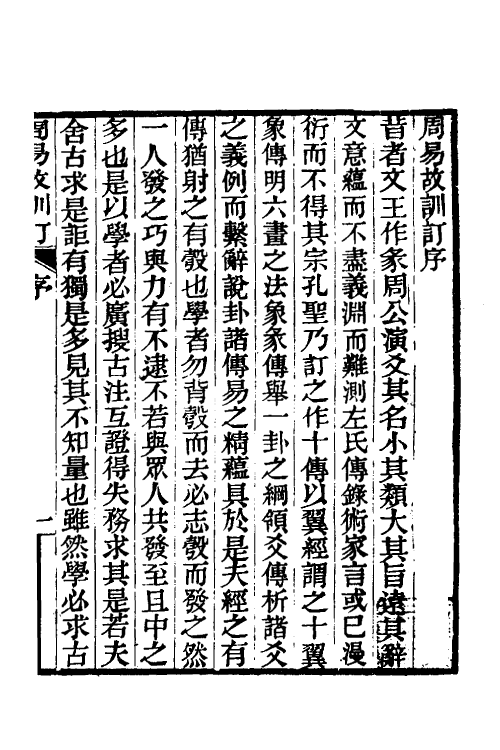 周易故訓訂序
昔者文王作彖周公演爻其名小其類大其旨遠其辭
文意蘊而不盡義淵而難測左氏傳錄術家言或已漫
衍而不得其宗孔聖乃訂之作十傳以翼經謂之十翼
象傳明六畫之法象彖傳舉一卦之綱領爻傳析諸爻
之義例而繫辭說卦諸傳易之精蘊具於是夫經之有
傳猶射之有彀也學者勿背彀而去必志彀而發之然
一人發之巧與力有不逮不若與眾人共發至且中之
多也是以學者必廣搜古注互證得失務求其是若夫
舍古求是詎有獨是多見其不知量也雖然學必求古
周易故訓訂 序 一